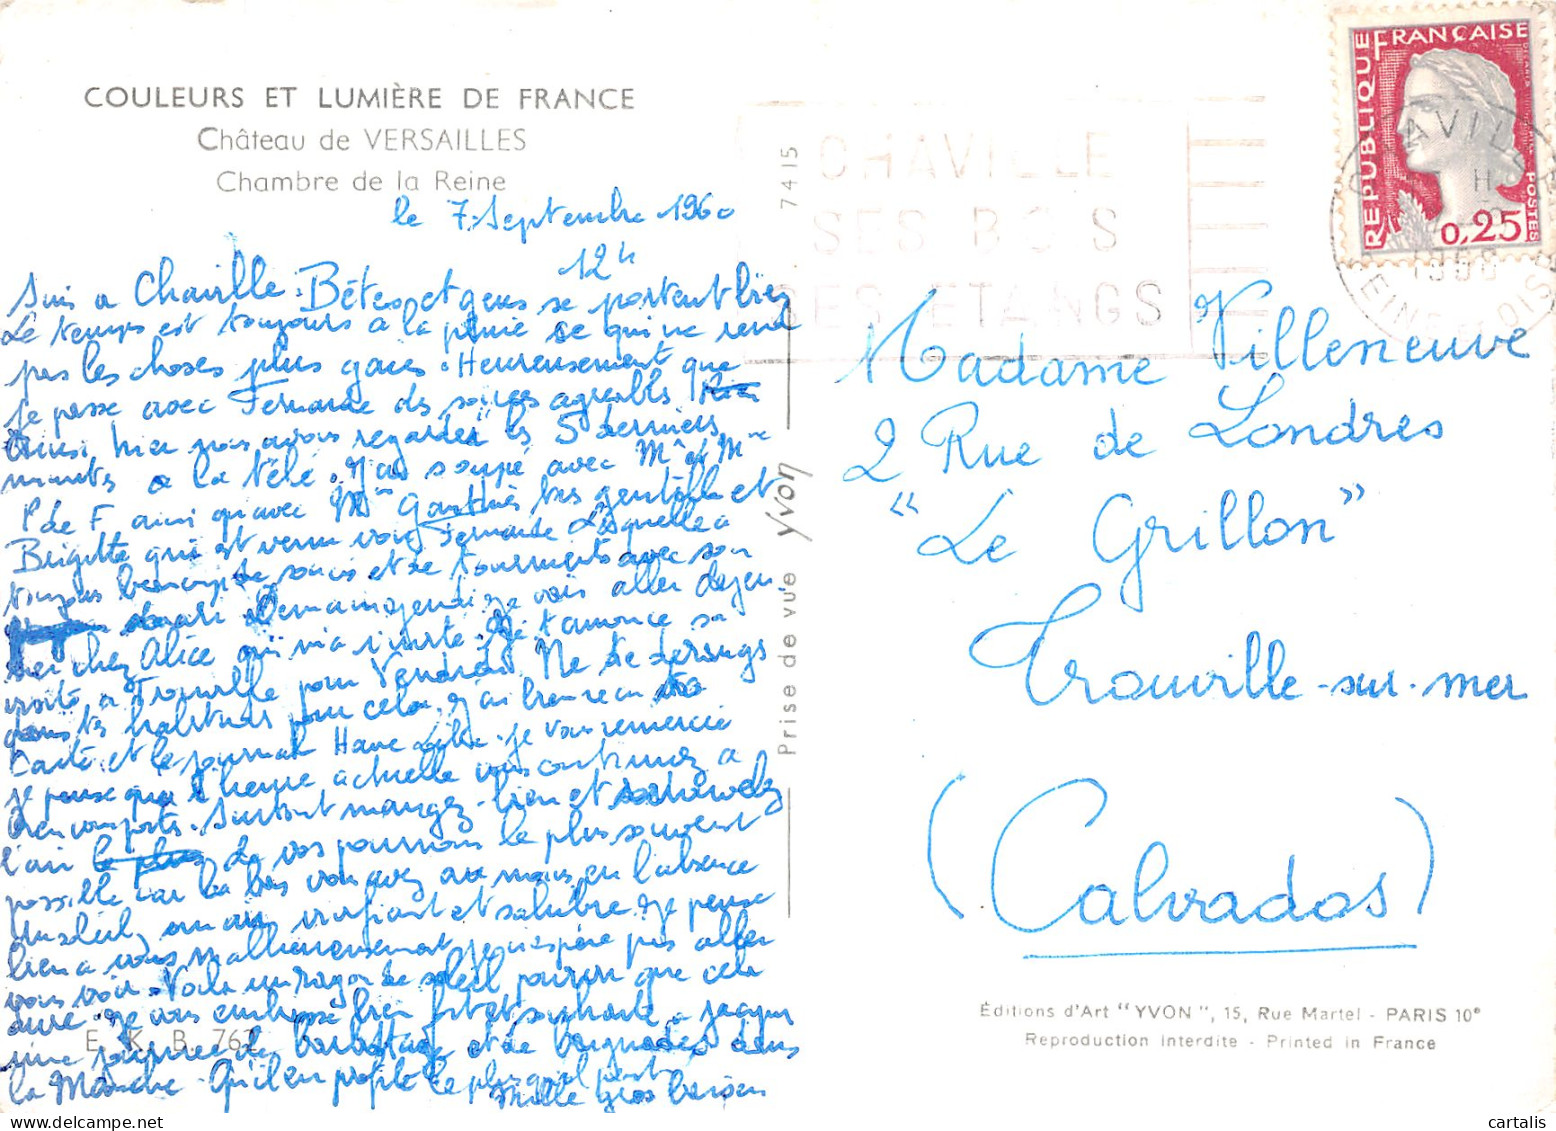 COULEURS ET LUMIÈRE DE FRANCE
Château de VERSAILLES
Chambre de la Reine
le 7 Septembre 1960
12h
Suis a Chaville. Bêtes et gens se portent bien
Le temps est toujours à la pluie ce qui ne rend
pas les choses plus gaies. Heureusement que
je passe avec Fernande des soirées agréables
Ainsi, hier nous avons regarder "les 5 derniers
minutes a la télé. J'ai soupé avec Mr et Mme
P de F ainsi qu'avec Mme très gentille et
Brigitte qui est venu voir Fernande Laquelle a
toujours beaucoup de soucis et de tourments avec son
Demain jeudi je vais aller déjeu-
ner chez Alice qui m'a invité. Je t'annonce sa
visite a Trouville pour Vendredi. Ne te déranges
dans tes habitudes pour cela. J'ai bien reçu ta
carte et le journal. Je vous remercie
je pense qu'a l'heure actuelle vous continuez a
bien vous porter. Surtout mangez bien et
l'air de vos poumons le plus souvent
possible car la bas vous avez au moins, en l'absence
du soleil, un air vivifiant et salubre. Je pense
bien a vous malheureusement je n'espère pas aller
vous voir. Voila un rayon de soleil pourvu que cela
dure. Je vous embrasse bien fort et souhaite a Jacques
une journée de barbotage et de baignades dans
la Manche. Qu'il en profite le plus qu'il peut
Mille gros baisers
E. K. B. 762
7415
yvon
Prise de vue
CHAVILLE
SES BOIS
SES ETANGS
REPUBLIQUE FRANÇAISE
POSTES
0,25
CHAVILLE
H
SEINE ET OISE
Madame Villeneuve
2 Rue de Londres
"Le Grillon"
Trouville-sur-mer
(Calvados)
Éditions d'Art "YVON", 15, Rue Martel - PARIS 10e
Reproduction interdite - Printed in France
cartalis